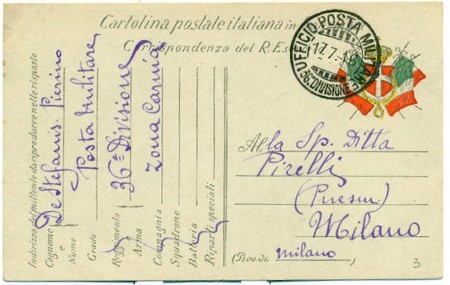 Cartolina postale italiana in
Corrispondenza del R. Es
UFFICIO POSTA MILITARE
17.7.16
36ª DIVISIONE
Indirizzo del mittente da riprodurre nelle risposte
Cognome e Nome
De Stefanis Pierino
Grado
Posta Militare
Reggimento
Arma
36ª Divisione
Compagnia
Squadrone
Zona Carnia
Batteria
Riparti speciali
Alla Sp. Ditta
Pirelli
Milano
(Prov. di
Milano
)
3